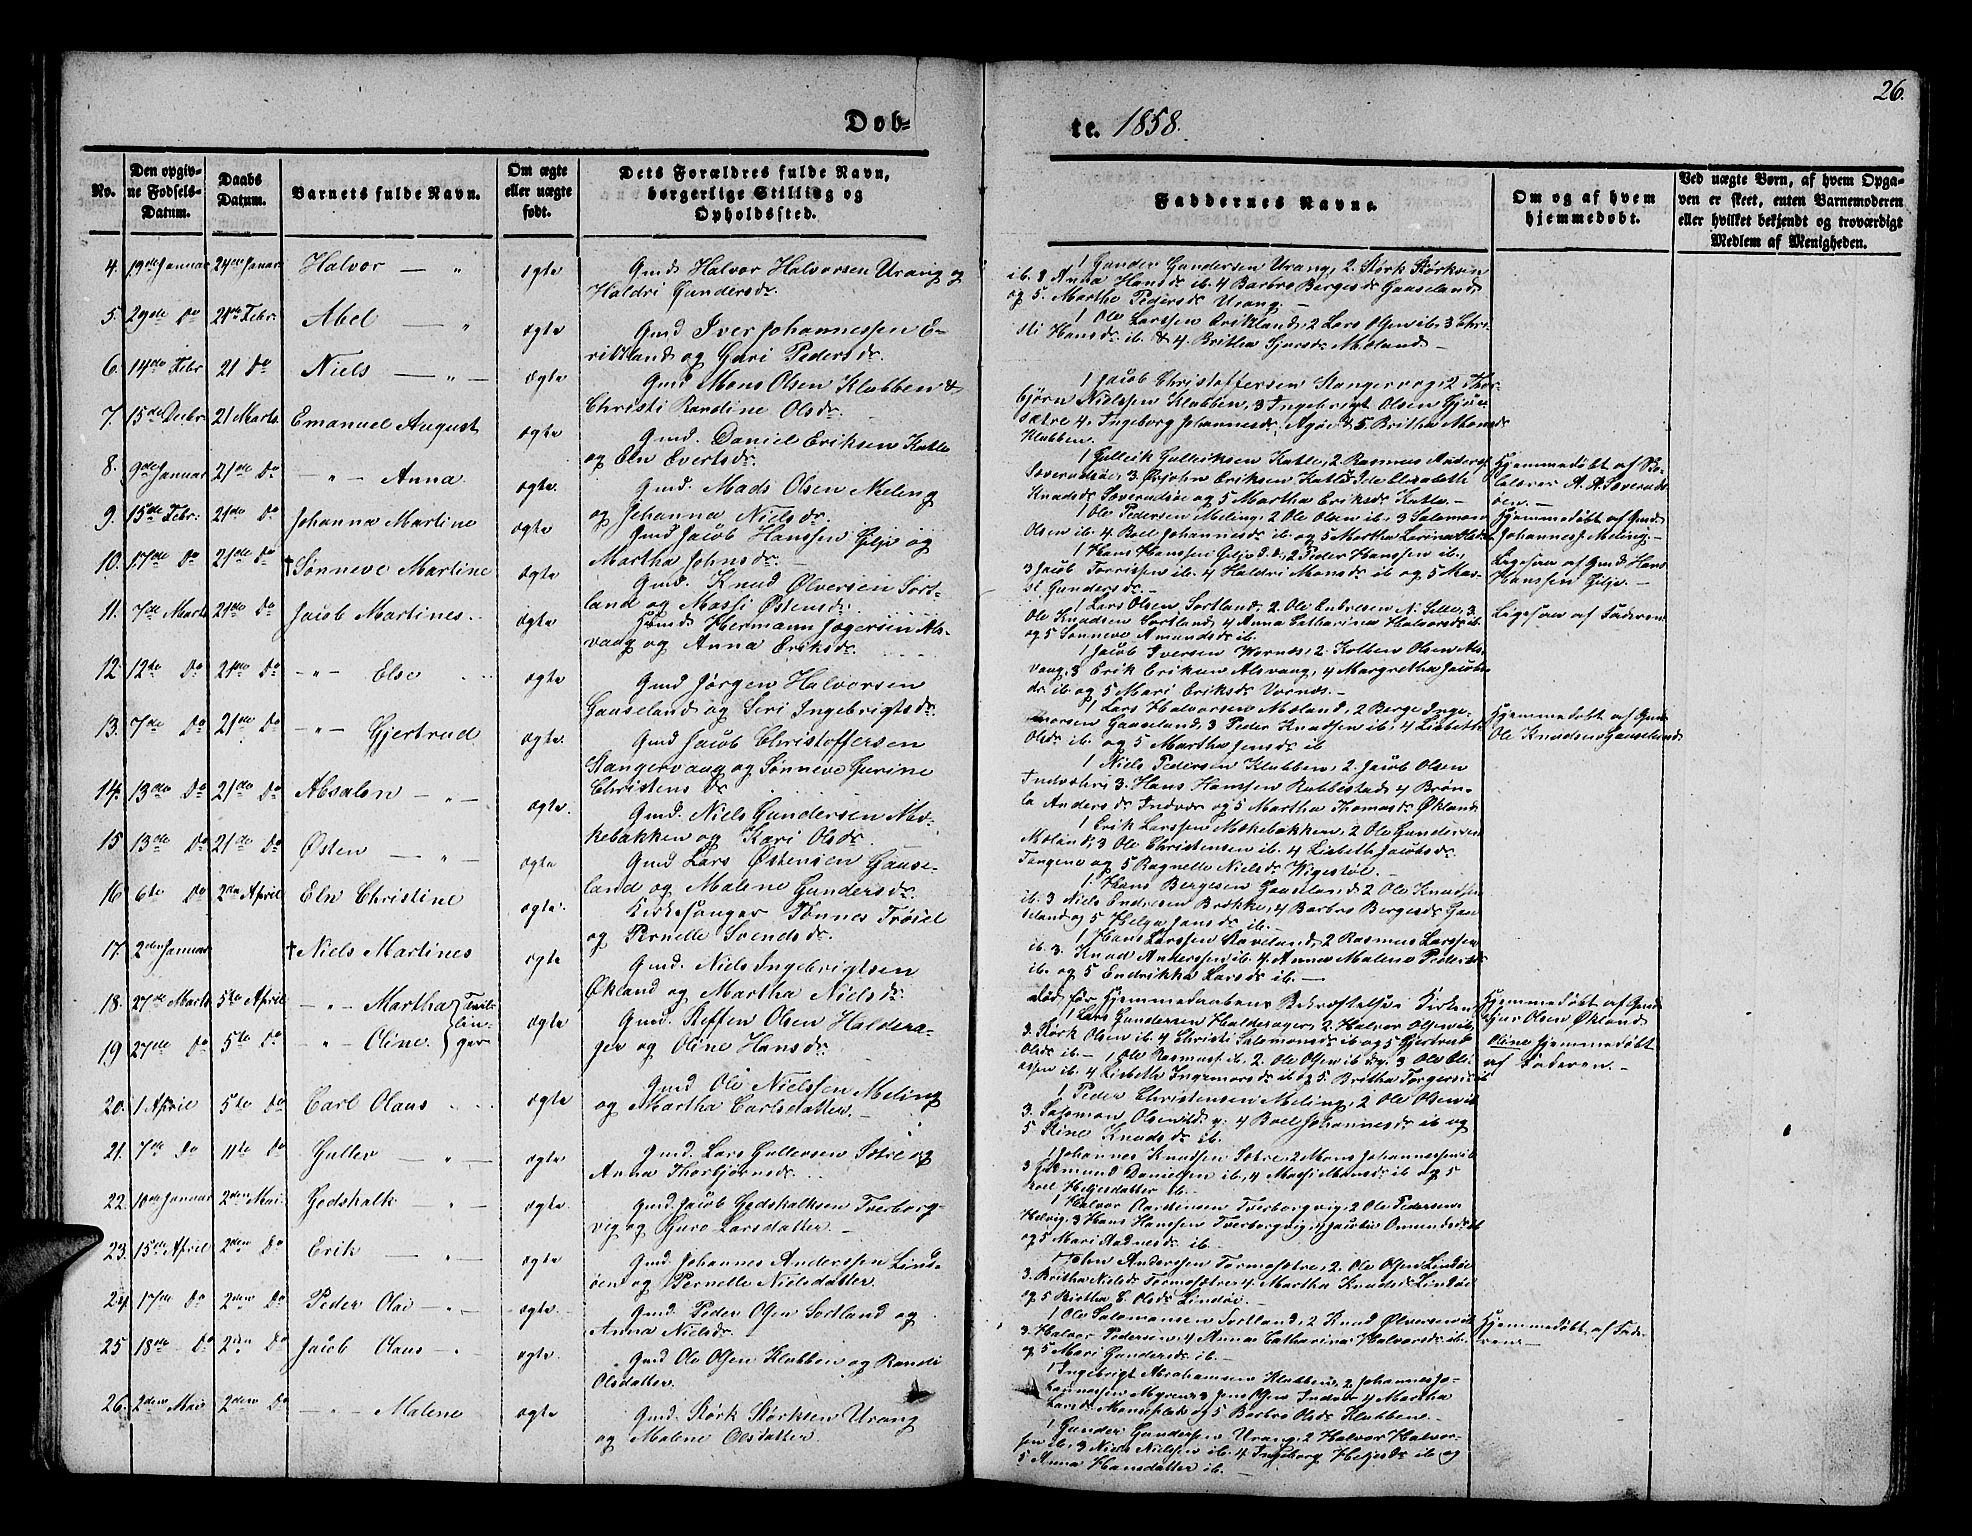 26.
Døb-
te. 1858.
No.
Den opgiv-
ne Fødsels-
Datum.
Daabs
Datum.
Barnets fulde Navn.
Om ægte
eller uægte
født.
Dets Forældres fulde Navn,
borgerlige Stilling og
Opholdssted.
Faddernes Navne.
Om og af hvem
hjemmedøbt.
Ved uægte Børn, af hvem Opga-
ven er skeet, enten Barnemoderen
eller hvilket bekjendt og troværdigt
Medlem af Menigheden.
4. 19de Januar 24de Januar Halvor — " ægte Gmd Halvor Halvorsen Urang og
Haldri Gundersdr.
1 Gunder Gundersen Urang, 2. Størk Størksen
ib. 3 Anna Hansdr ib. 4 Barbro Bergesdr Gaaseland
og 5. Martha Pedersdr Urang. —
5. 29de Do 21de Febr. Abel — " ægte Gmd. Iver Johannessen E-
rikland og Guri Pedersdr.
1 Ole Larssen Erikland, 2 Lars Olsen ib. 3 Chri-
sti Hansdr ib. & 4. Britha Sjursdr Møland —
6. 14de Febr 21 Do Niels — " — ægte Gmd Mons Olsen Klubben &
Christi Randine Olsdr.
1 Jacob Christoffersen Stangervag, 2 Thor-
bjørn Nielssen Klubben, 3 Ingebrigt Olsen
sætre 4. Ingeborg Johannesdr Agøe & 5 Britha Monsdr
Klubben.
7. 15de Decbr 21 Marts Emanuel August ægte Gmd. Daniel Eriksen Katle
og Eln Evertsdr.
1 Gulleik Gulleiksen Katle, 2 Rasmus Anders
3. Ørjohn Eriksen Katle Ida Elisabeth
Knudsdr og 5 Martha Eriksdr Katle —
Hjemmedøbt af Sko-
lelærer A. A.
øen. —
8. 9de Januar 21de Do — " — Anna ægte Gmd. Mads Olsen Meling
og Johanna Nielsdr.
1 Ole Pedersen Meling, 2 Ole Olsen ib, 3 Salomon
Olsen ib. 4. Boel Johannesdr ib og 5 Martha
Hjemmedøbt af Gmd.
Johannes Meling. —
9. 15de Febr. 21de Do Johanna Martine ægte Gmd Jacob Hanssen Gilje og
Martha Johnsdr. —
1 Hans Hanssen Gilje, 2 Peder Hanssen ib.,
3 Jacob Torrissen ib. 4 Haldri Monsdr ib og 5 Mas-
si Gundersdr. —
Ligesaa af Gmd Hans
Hanssen Gilje. —
10. 17de Do 21de Do † Sønneve Martine ægte Gmd. Knud Ølversen Sort-
land og Massi Østensdr.
1 Lars Olsen Sortland, 2. Ole
Ole Knudsen Sortland, 4 Anna Catharina Halvorsdr ib
og 5 Sønneve Amundsdr ib.
Ligesaa af Faderen
11. 7de Marts 21de Do Jacob Martines. ægte Gmd Hermann Jøgersen Als-
vaag og Anna Eriksdr.
1 Jacob Iversen Vornes, 2. Kolben Olsen Als-
vaag, 3 Erik Eriksen Alsvaag, 4 Margretha Jacobs-
dr ib og 5 Mari Eriksdr Vornes. —
12 12te Do 21de Do — " — Else ægte Gmd Jørgen Halvorsen
Gaaseland og Siri Ingebrigtsdr
1 Lars Halvorsen Møland, 2 Berge Inge-
morsen Gaaseland, 3 Peder Knudsen ib, 4 Lisbeth
Olsdr ib. og 5 Martha Jensdr ib
Hjemmedøbt af Gmd
Ole Knudsen Gaaseland
13. 7de Do 21de Do — " — Gjertrud ægte. Gmd Jacob Christoffersen
Stangervaag og Sønneve Gurine
Christensdr.
1 Niels Pedersen Klubben, 2. Jacob Olsen
3. Hans Hanssen Rabbestad, 4 Brøn-
la Andersdr Indvær og 5 Martha Thomasdr Økland
14. 13de Do 21de Do Absalon — " — ægte. Gmd. Niels Gundersen Mæ-
kebakken og Kari Olsdr.
1 Erik Larssen Mækebakken, 2 Ole Gundersen
Møland, 3 Ole Christensen ib. 4 Lisbeth Jacobsdr.
Tangene og 5 Ragnelle Nielsdr Vigestøl. —
15 13de Do 21de Do Østen — " — ægte Gmd Lars Østensen Gaase-
land og Malene Gundersdr.
1 Hans Bergesen Gaaseland, 2 Ole Knudsen
ib. 3 Niels Endresen Brække, 4 Barbro Bergesdr Gaa-
seland og 5 Helga Jensdr ib.
16 6te Do 2den April Eln Christine ægte. Kirkesanger Tønnes Trøiel
og Pernelle Svendsdr.
1 Hans Larssen Raveland, 2 Rasmus Larssen
ib. 3. Knud Anderssen ib. 4. Anna Malena Pedersdr
ib. og 5 Endrikka Larsdr ib. —
17. 2den Januar † Niels Martines ægte Gmd. Niels Ingebrigtsen
Økland og Martha Nielsdr.
død før Hjemmedaabens Bekræftelse i Kirken
Hjemmedøbt af Gmd
Sjur Olsen Økland
18. 27de Marts 5te April — " — Martha Tvil-
lin-
ger
19 27de Do 5te Do — " — Oline
ægte Gmd. Steffen Olsen Haldera-
ger og Oline Hansdr
1 Lars Gundersen Halderager, 2. Halvor Olsen ib,
3. Størk Olsen ib. 4 Christi Salomonsdr ib og 5 Gjertrud
Olsdr ib — 1 Ole Rasmuss. ib. 2. Ole Olsen ib 3 Ole Ol-
essen ib. 4 Lisbeth Ingemorsdr ib og 5. Britha Torgersdr ib
Oline hjemmedøbt
af Faderen. —
20. 1 April 5te Do Carl Olaus ægte Gmd Ole Nielssen Meling
og Martha Carlsdatter —
1 Peder Christensen Meling, 2 Ole Olsen ib
3. Salomon Olsen 4 Boel Johannesdr ib og
5 Stine Knudsdr ib.
21. 7de Do 11te Do Guller — " — ægte Gmd. Lars Gullersen Sætre og
Anna Thorbjørnsdr.
1 Johannes Knudsen Sætre, 2 Mons Johannessen ib
3 Gudmund Danielsen ib. 4 Massi Monsdr ib og 5
Helgesdatter ib. —
22. 10de Januar 2den Mai Godskalk — " — ægte Gmd. Jacob Godskalksen Tverborg-
vig og Guro Larsdatter —
1 Halvor Aadnesen Tverborgvig, 2 Ole Pedersen
Helvig, 3 Hans Hanssen Tverborgvig, 4 Jacobie Omundsdr ib
og 5 Mari Aadnesdr ib. —
23. 15de April 2den Do Erik — " — ægte Gmd. Johannes Anderssen Lind-
øen og Pernelle Nielsdatter.
1 John Anderssen Tormosætre, 2. Ole Olsen Lindøe
3. Britha Nielsdr Tormosætre, 4. Martha Knudsdr Lindøe
og 5 Birtha E. Olsdr Lindøe. —
24. 17de Do 2den Do Peder Olai — " — ægte. Gmd. Peder Olsen Sortland og
Anna Nielsdr.
1 Ole Salomonsen Sortland, 2 Knud Ølversen ib
3. Halvor Pedersen, 4 Anna Catharina Halvorsdr ib.
og 5 Mari Gundersdr ib. —
Hjemmedøbt af Fade-
ren. —
25 18de Do 2den Do Jacob Olaus — " ægte. Gmd Ole Olsen Klubben og Randi
Olsdatter.
1 Ingebrigt Abrahamsen Klubben, 2 Johannes Jo-
hannessen Myren, 3 Jens Olsen Indvær 4 Martha
Larsdr og 5 Barbro Olsdr Klubben —
26. 2den Mai 2den Do — " — Malene ægte Gmd. Størk Størksen Urang
og Malene Olsdatter
1 Gunder Gundersen Urang, 2 Halvor Halvor-
sen ib. 3 Niels Nielsen ib. 4 Ingeborg Helgesdr ib og
5 Anna Hansdatter ib. —